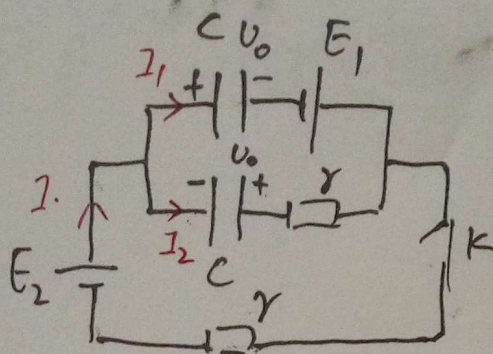 C U₀ E₁
I₁ + -
U₀
I. - + r
I₂ K
E₂ C
r